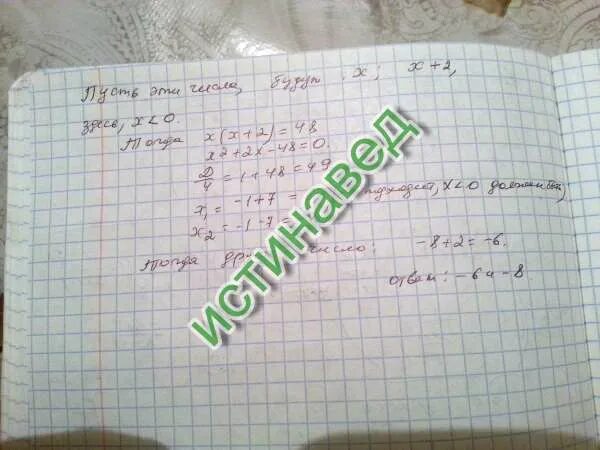 Пусть эти числа, будут x; x+2,
здесь, x<0.
Тогда x(x+2)=48
x²+2x-48=0.
D/4=1+48=49
x₁= -1+7 = подходит, x<0 должен быть)
x₂= -1-7=
тогда число: -8+2=-6.
ответ: -6и-8.
ИСТИНАВЕД